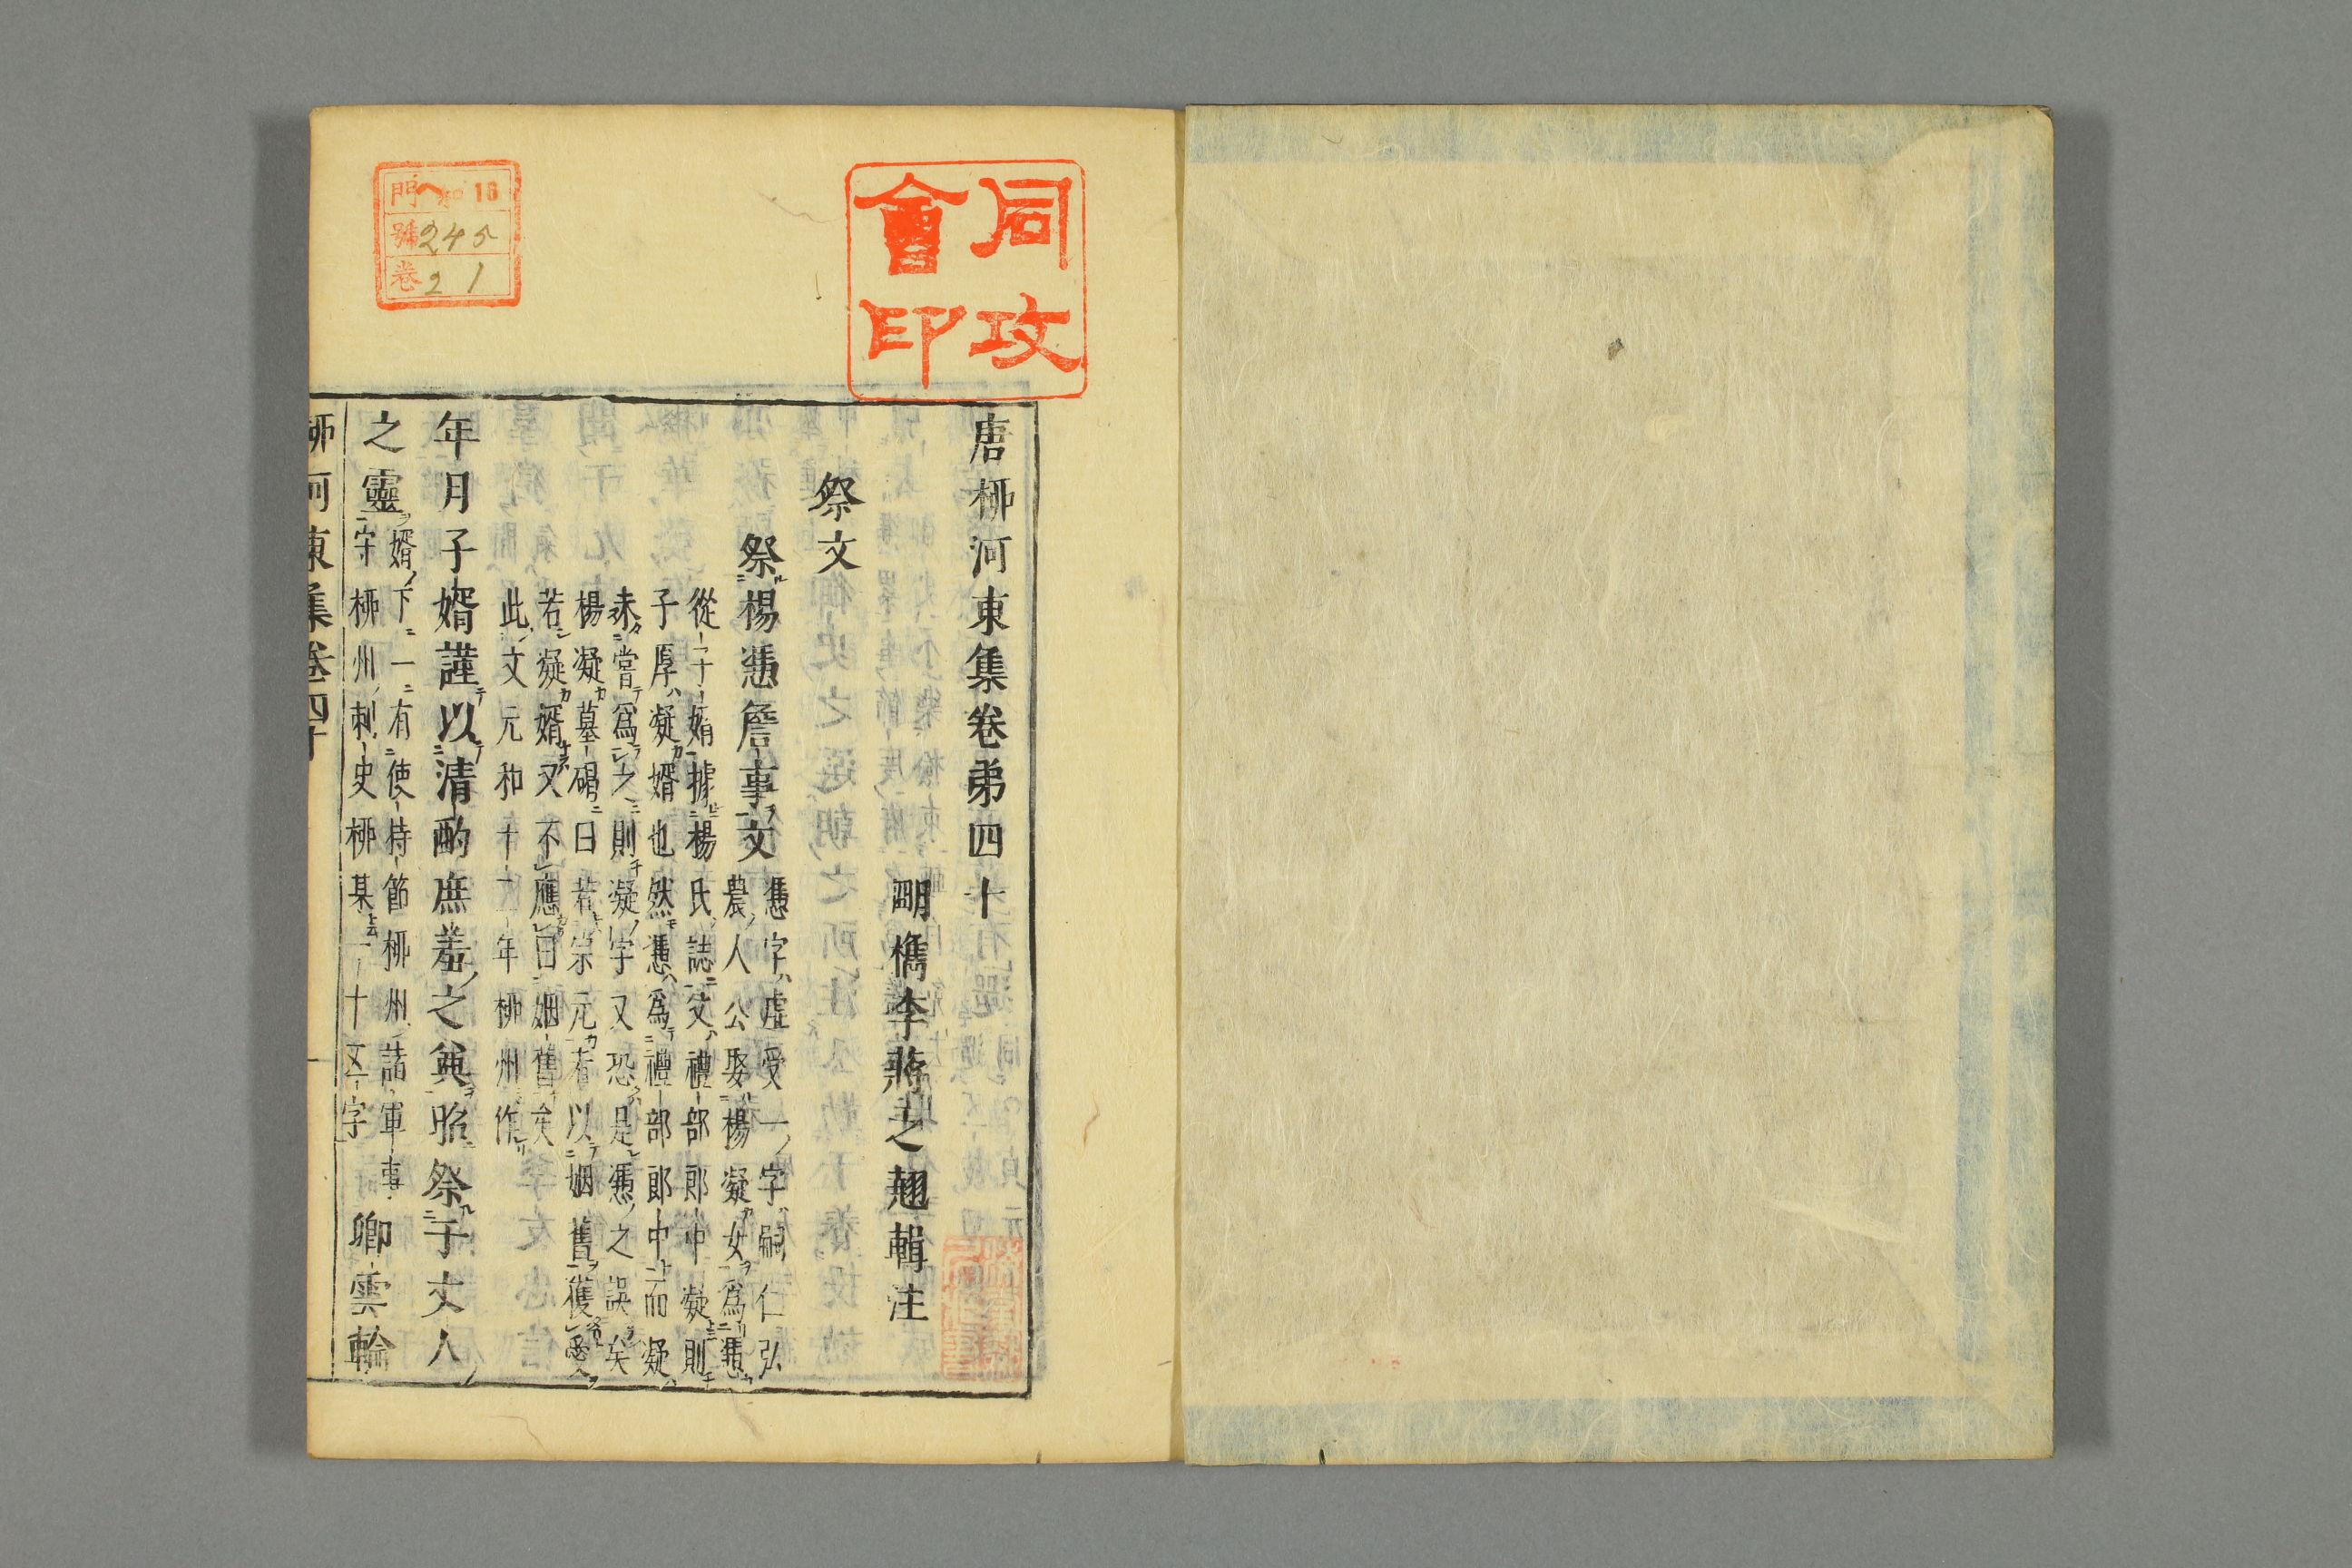 同攻
會印
門 ヘ 16
號 245
卷 21
唐柳河東集卷弟四十
明檇李蔣之翹輯注
祭文
祭楊憑詹事文
憑字虛受一字嗣仁弘
農人公娶楊凝女爲憑
從子婿據楊氏誌文禮部郎中凝則
子厚凝婿也然憑爲禮部郎中而凝
未嘗爲之則凝字又恐是憑之誤矣
楊凝墓碣曰若宗元有以姻舊獲愛
若凝婿又不應曰姻舊矣
此文元和十一年柳州作
年月子婿謹以清酌庶羞之奠昭祭于丈人
之靈
婿下一有使持節柳州諸軍事
守柳州刺史柳某十五字
卿雲輪
柳河東集卷四十
一